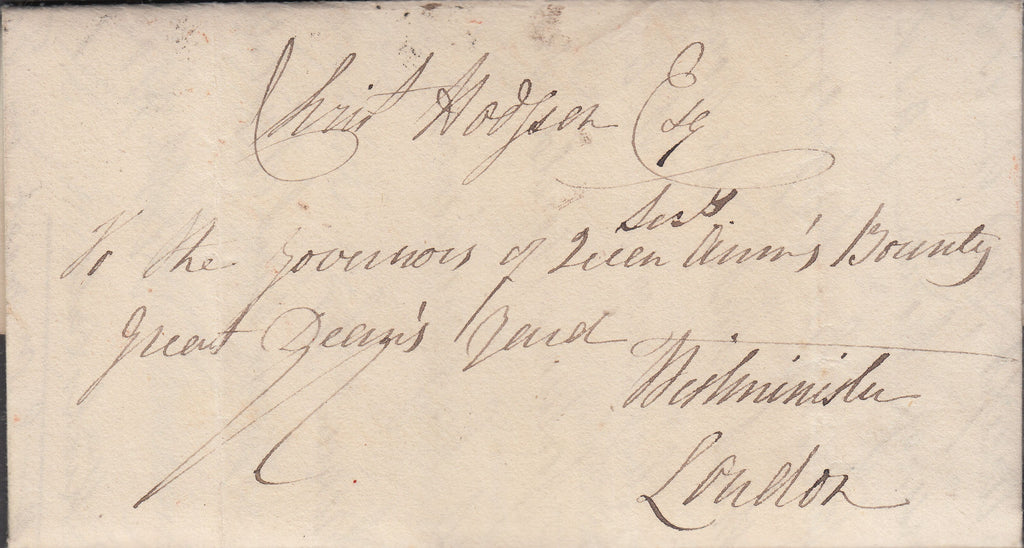 Christ Hodgson Esq
Secy
To the Governors of Queen Ann's Bounty
Great Dean's Yard
Westminister
London